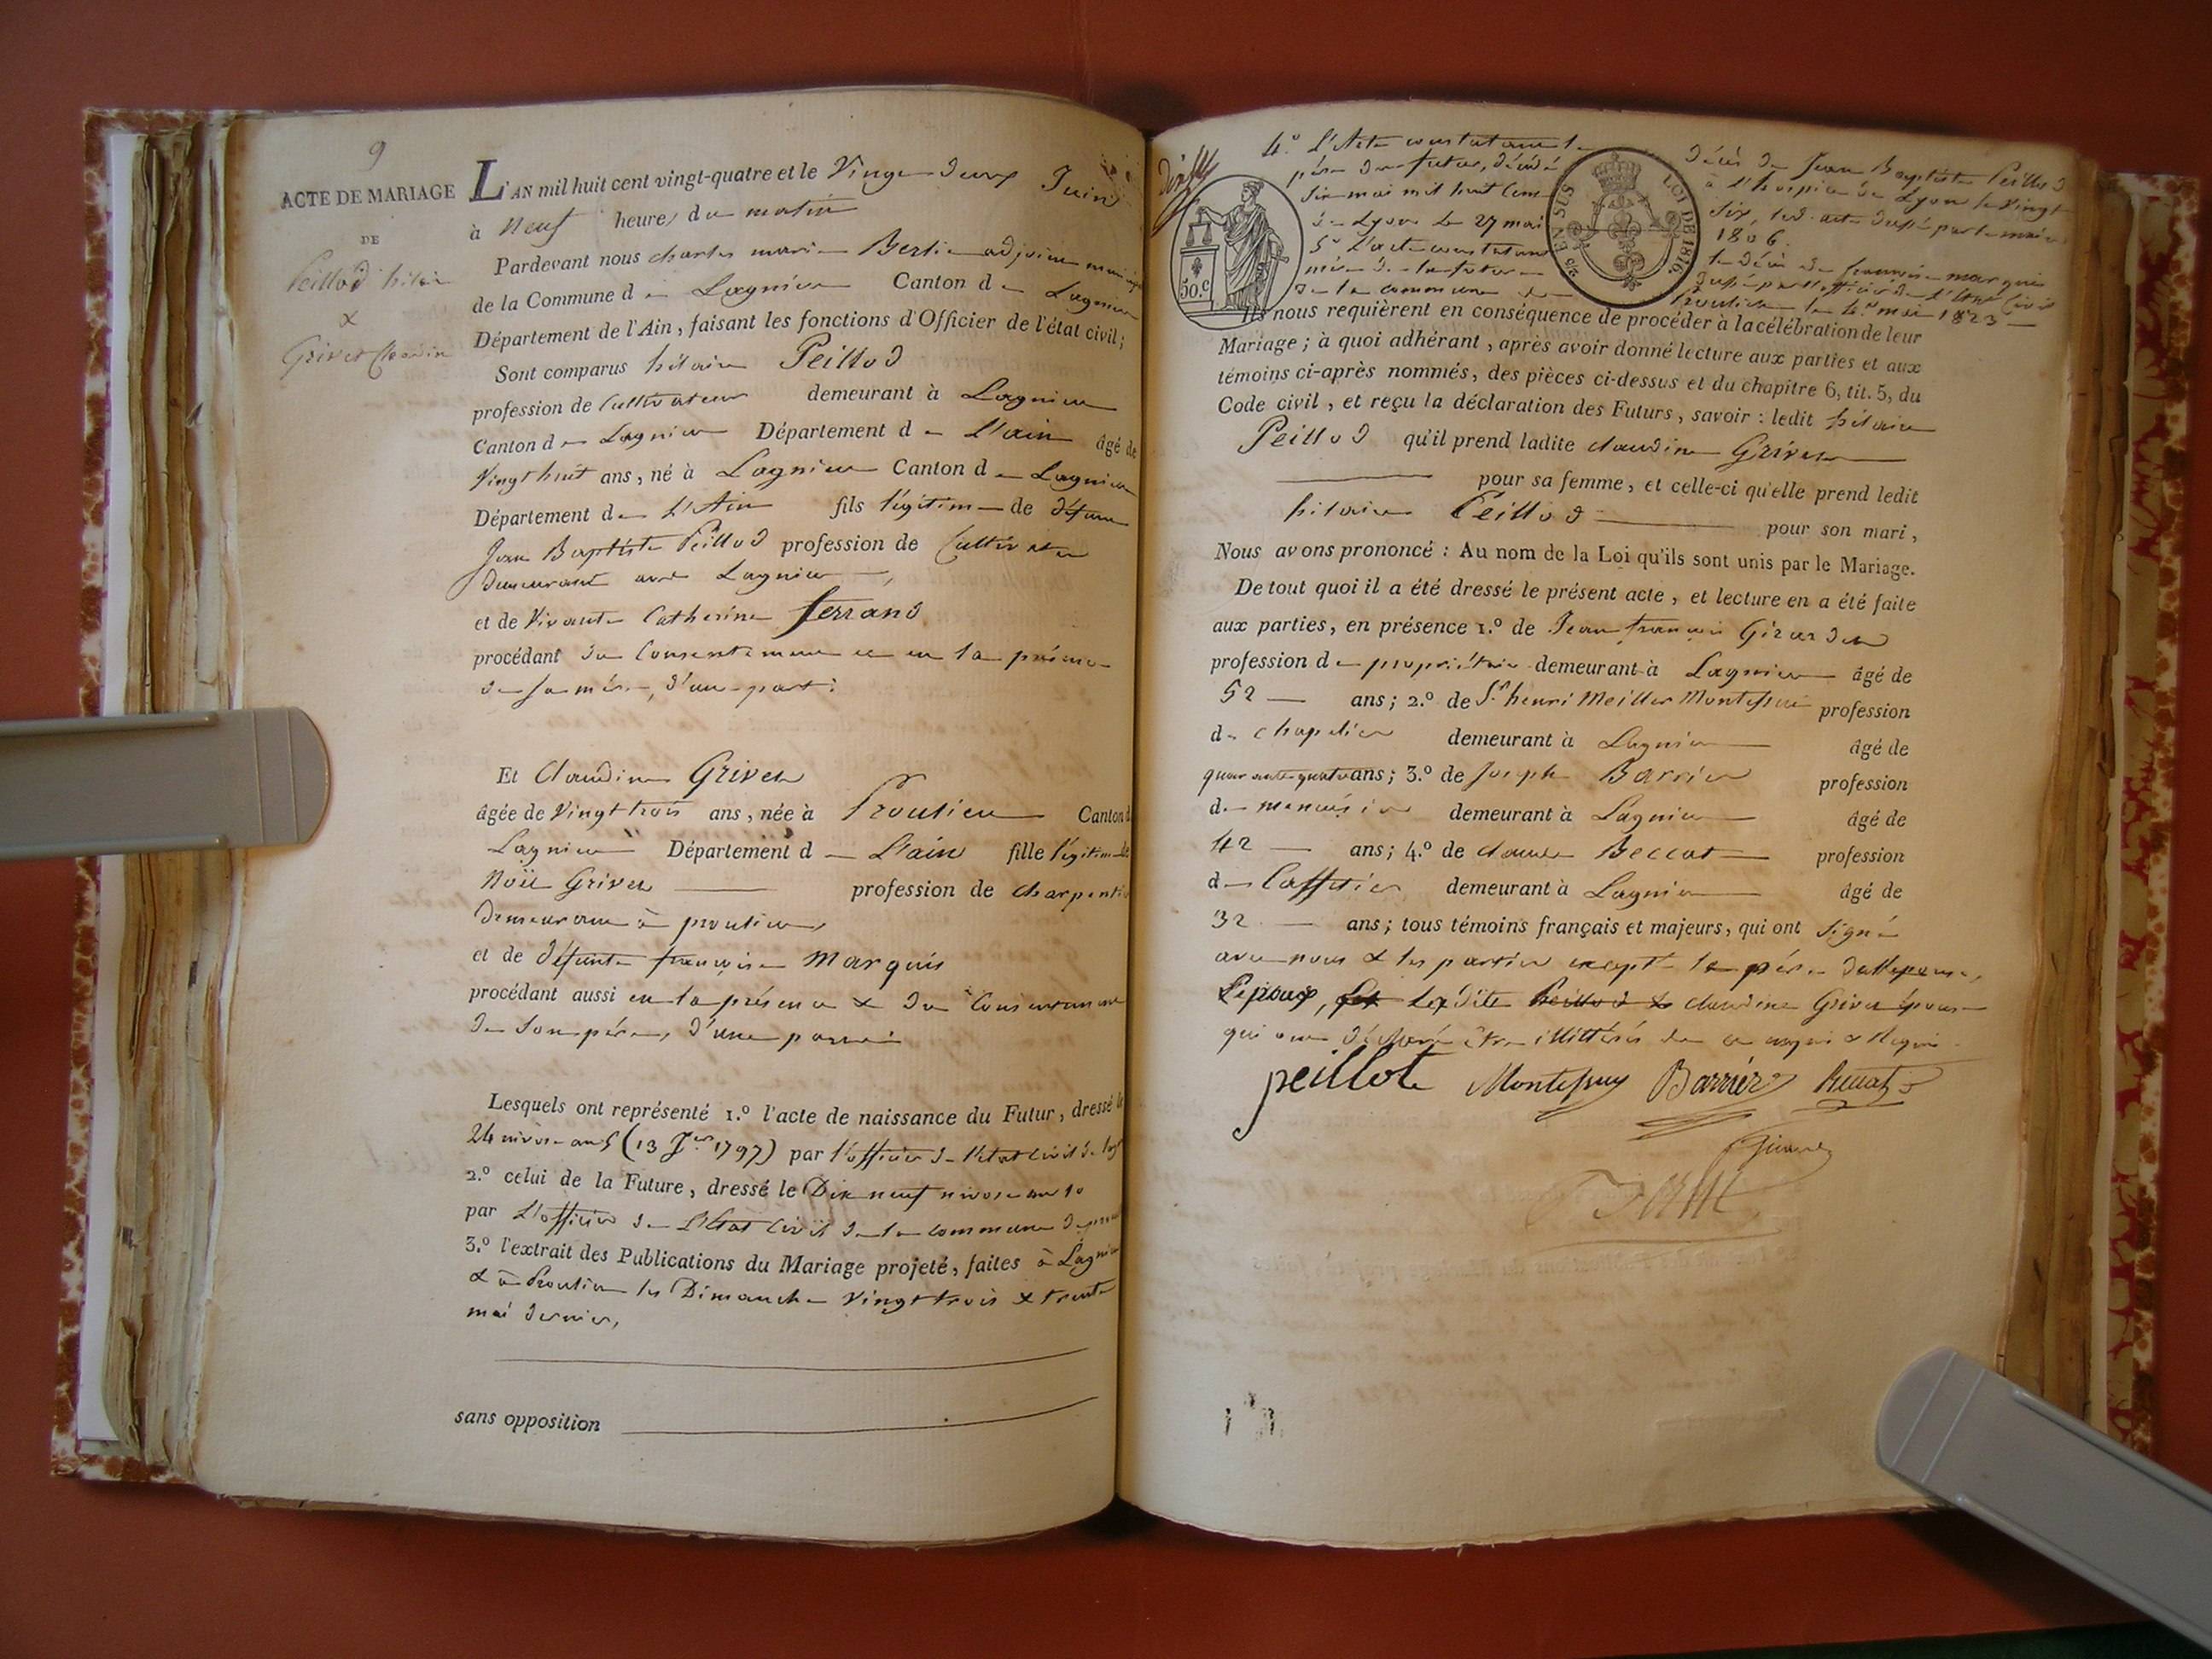 9
ACTE DE MARIAGE
DE
Peillod hilaire
&
Grivet Claudine
L'AN mil huit cent vingt-quatre et le Vingt deux Juin
à Neuf heures du matin
Pardevant nous charles marie Berlie adjoint municipal
de la Commune de Lagnieu Canton de Lagnieu
Département de l'Ain, faisant les fonctions d'Officier de l'état civil;
Sont comparus hilaire Peillod
profession de Cultivateur demeurant à Lagnieu
Canton de Lagnieu Département de L'ain âgé de
Vingt huit ans, né à Lagnieu Canton de Lagnieu
Département de L'Ain fils légitime de défunt
Jean Baptiste Peillod profession de Cultivateur
demeurant Lagnieu
et de Vivante Catherine ferrand
procédant du Consentement et en la présence
de sa mère, d'une part:
Et Claudine Grivet
âgée de Vingt trois ans, née à Proulieu Canton d
Lagnieu Département de L'ain fille légitime de
Noël Grivet profession de charpentier
demeurant à proulieu,
et de défunte françoise Marquis
procédant aussi en la présence & du Consentement
de son père, d'une part:
Lesquels ont représenté 1.º l'acte de naissance du Futur, dressé le
24 nivose an 5 (13 Jer 1797) par l'officier de l'état civil de
2.º celui de la Future, dressé le Dix neuf nivose an 10
par L'officier de L'Etat Civil de la commune de
3.º l'extrait des Publications du Mariage projeté, faites à Lagnieu
& à Proulieu les Dimanche Vingt trois & trente
mai dernier,
sans opposition
4.º L'Acte constatant le décès de Jean Baptiste Peillod
père du futur, décédé à l'hospice de Lyon le vingt
six mai mil huit cent six, led. acte dressé par le maire
de Lyon le 27 mai 1806.
5º L'acte constatant le décès de françoise marquis
mère de la future dressé par l'officier de l'Etat Civil
de la commune de Proulieu le 4 mai 1823
50.c
EN SUS
LOI DE 1816.
Ils nous requièrent en conséquence de procéder à la célébration de leur
Mariage; à quoi adhérant, après avoir donné lecture aux parties et aux
témoins ci-après nommés, des pièces ci-dessus et du chapitre 6, tit. 5, du
Code civil, et reçu la déclaration des Futurs, savoir: ledit hilaire
Peillod qu'il prend ladite claudine Grivet
pour sa femme, et celle-ci qu'elle prend ledit
hilaire Peillod pour son mari,
Nous avons prononcé: Au nom de la Loi qu'ils sont unis par le Mariage.
De tout quoi il a été dressé le présent acte, et lecture en a été faite
aux parties, en présence 1.º de Jean françois Girardet
profession de propriétaire demeurant à Lagnieu âgé de
52 ans; 2.º de Sr henri Meiller Montessui profession
de chapelier demeurant à Lagnieu âgé de
quarante quatre ans; 3.º de Joseph Barrier profession
de menuisier demeurant à Lagnieu âgé de
42 ans; 4.º de claude Beccat profession
de Caffetier demeurant à Lagnieu âgé de
32 ans; tous témoins français et majeurs, qui ont signé
avec nous & les parties excepté le père de l'épouse,
L'epoux, ladite Peillod claudine Grivet épouse
qui ont déclaré être illittérés de ce enquis & requis
peillote Montessuy Barrier Beccat